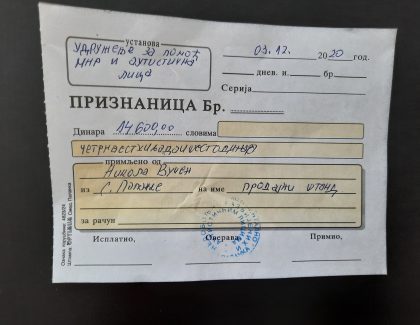 установа
УДРУЖЕЊЕ ЗА ПОМОЋ
МНР И АУТИСТИЧНА
ЛИЦА
03.12. 2020 год.
днев. и. бр.
Серија
ПРИЗНАНИЦА Бр.
Динара 14600,00 словима
ЧЕТРНАЕСТХИЉАДАИШЕСТОДИНАРА
примљено од
Никола Вучен
из С. Пазове на име ПРОДАЈНИ ШТАНД
за рачун
Исплатно, Оверава, Примио,